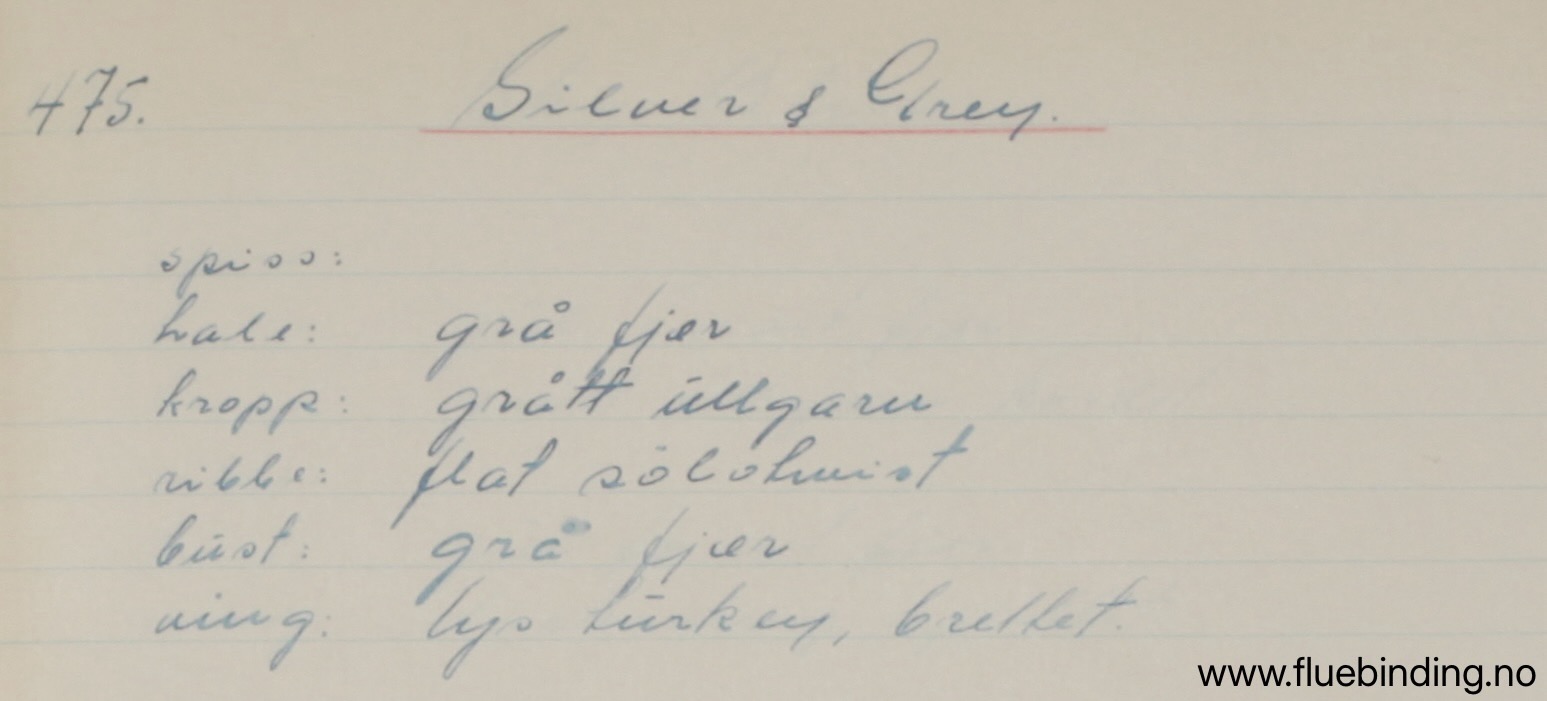 475. Silver & Grey.
spiss:
hale: grå fjær
kropp: grått ullgarn
ribbe: flat sölvtwist
bust: grå fjær
ving: lys turkey, brettet.
www.fluebinding.no